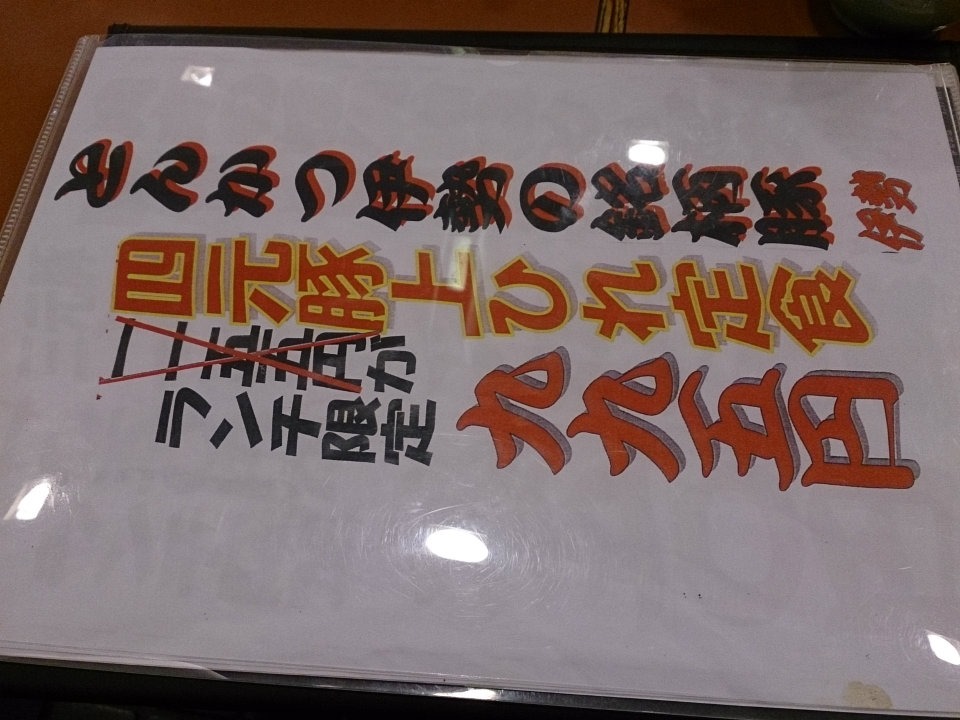 とんかつ伊勢の銘柄豚
四元豚上ひれ定食
一二五五円が
ランチ限定
九九五円
伊勢